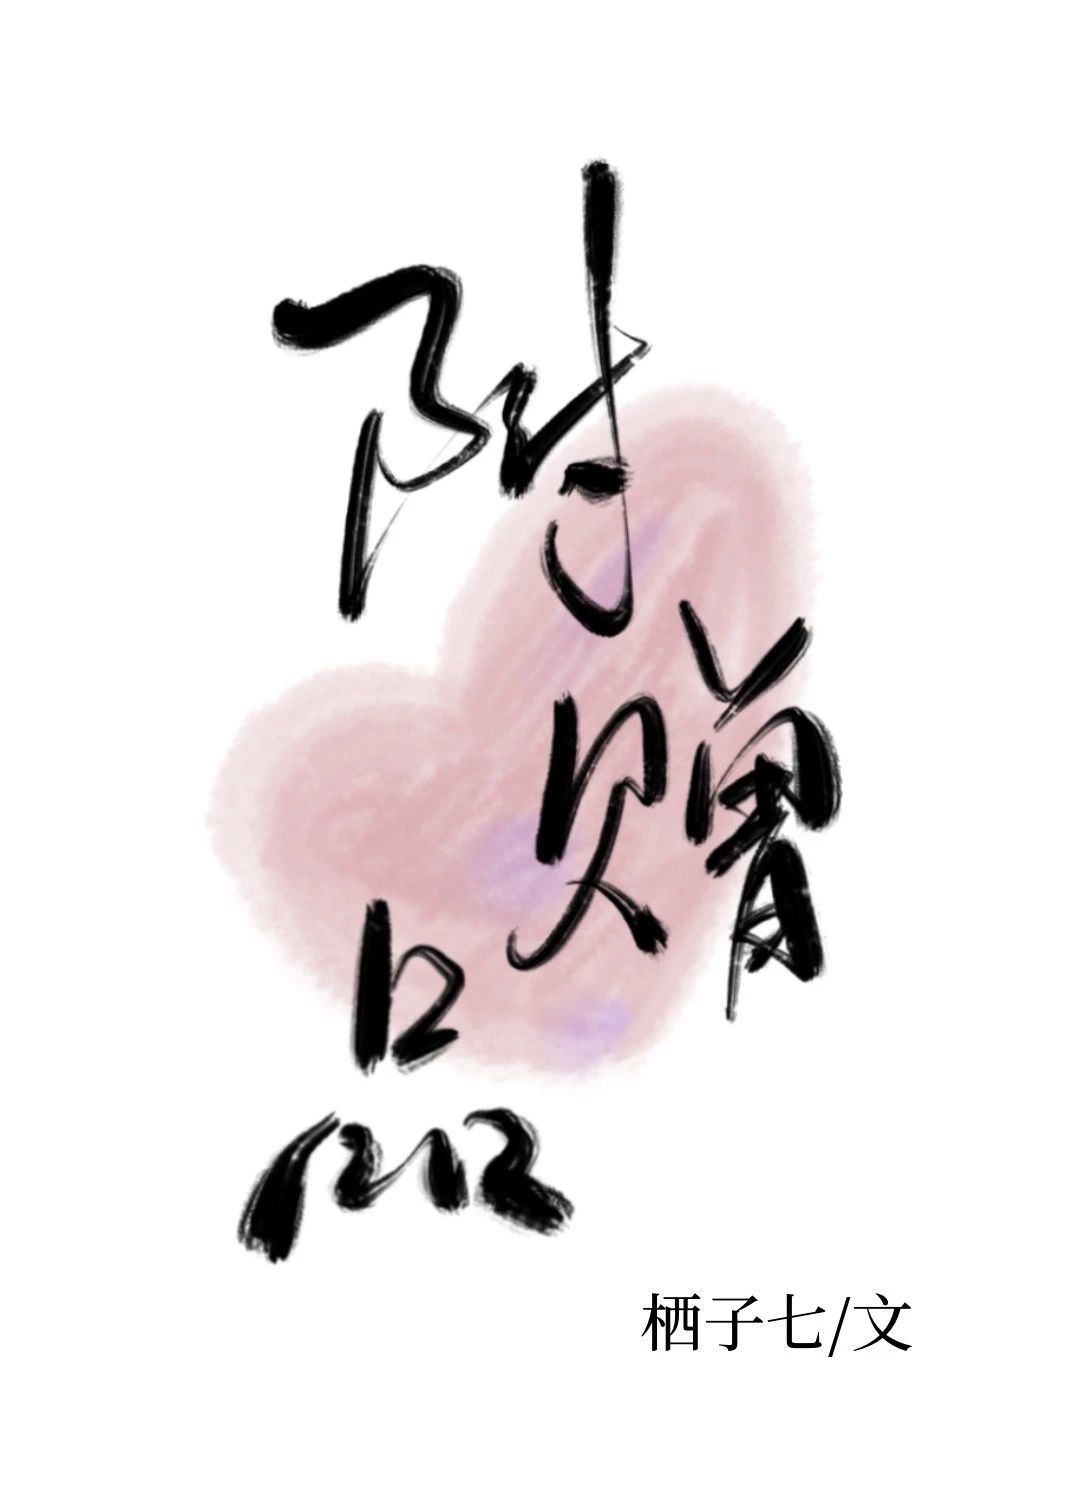 附
赠
品
栖子七/文